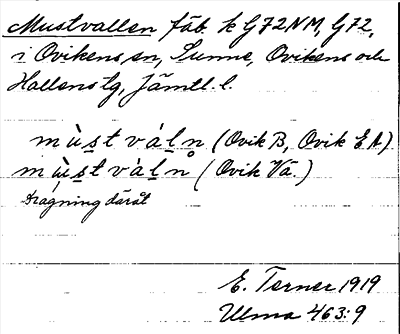 Mustvallen fäb. k G72NM, G72,
i Ovikens sn, Sunne, Ovikens och
Hallens tg, Jämtl. l.
mùs̲t vàl̲n (Ovik B, Ovik E A)
mùs̲t vàl̲n̊ (Ovik Vä.)
Dragning däråt
E. Terner 1919
Ulma 463:9